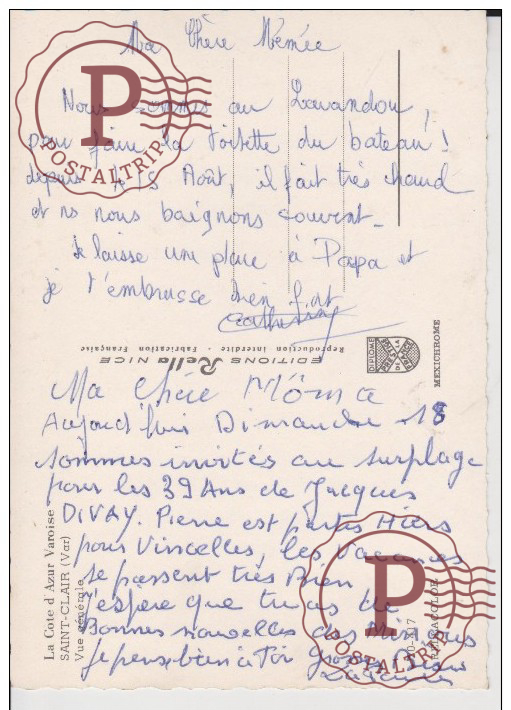 Ma Chère Mémée
Nous sommes au Lavandou,
pour faire la toilette du bateau!
depuis le 15 Août, il fait très chaud
et ns nous baignons souvent_
Je laisse une place à Papa et
je t'embrasse bien fort
Catherine
EDITIONS Rella NICE
Reproduction Interdite - Fabrication Française
DIPLOME
PRES
DE
LA
FRANCE
MEXICHROME
Ma Chère Môma
Aujourd'hui Dimanche 18
sommes invités au surplage
pour les 39 Ans de Jacques
DIVAY. Pierre est partis Hiers
pour Vincelles, les Vacances
se passent très Bien,
j'espere que tu as de
Bonnes nouvelles des
Je pense bien à Toi Gros
La Cote d'Azur Varoise
SAINT-CLAIR (Var)
Vue générale
P
POSTALTRIP
P
POSTALTRIP